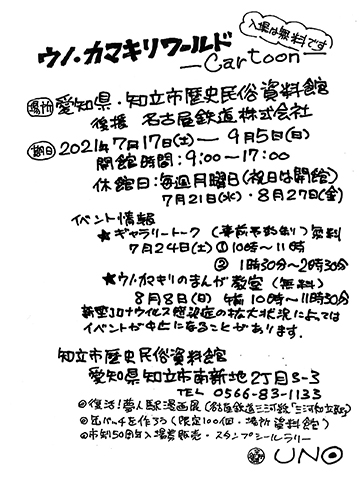 入場は無料です
ウノ・カマキリワールド
—Cartoon—
場所 愛知県・知立市歴史民俗資料館
後援 名古屋鉄道株式会社
期日 2021年7月17日(土)— 9月5日(日)
開館時間:9:00〜17:00
休館日:毎週月曜日(祝日は開館)
7月21日(水)・8月27日(金)
イベント情報
★ギャラリートーク(事前予約あり)無料
7月24日(土)①10時〜11時
② 1時30分〜2時30分
★ウノ・カマキリのまんが教室(無料)
8月8日(日)午前10時〜11時30分
新型コロナウイルス感染症の拡大状況によっては
イベントが中止になることがあります.
知立市歴史民俗資料館
愛知県知立市南新地2丁目3-3
TEL 0566-83-1133
◎復活!夢人駅漫画展(名古屋鉄道三河線「三河知立駅」)
◎缶バッチを作ろう(限定100個・場所 資料館)
◎市制50周年入場券販売・スタンプシールラリー
UNO